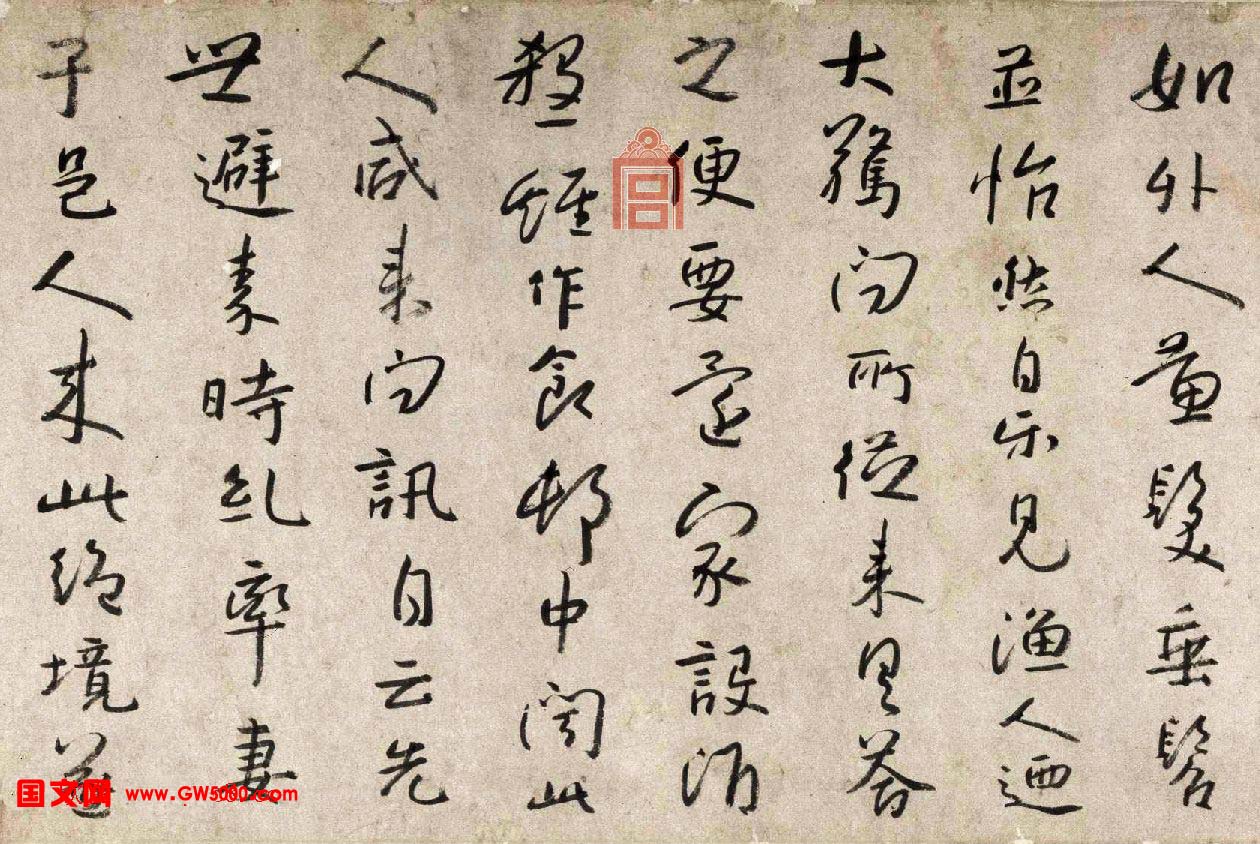 如外人黄髮垂髫
並怡然自乐見渔人迺
大驚问所從来具答
之便要還家設酒
殺雞作食邨中闻此
人咸来问訊自云先
世避秦時乱率妻
子邑人来此絕境遂
国文网 www.GW5000.com